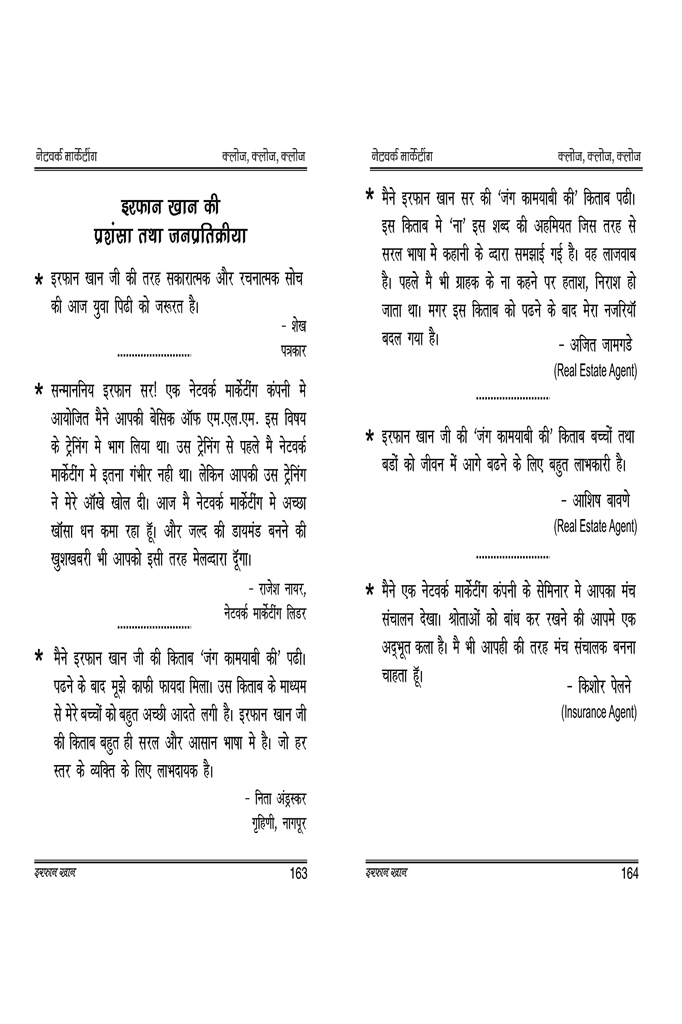 नेटवर्क मार्केटींग क्लोज, क्लोज, क्लोज
इरफान खान की
प्रशंसा तथा जनप्रतिक्रीया
* इरफान खान जी की तरह सकारात्मक और रचनात्मक सोच
की आज युवा पिढी को जरूरत है।
- शेख
पत्रकार
* सन्माननिय इरफान सर! एक नेटवर्क मार्केटींग कंपनी मे
आयोजित मैने आपकी बेसिक ऑफ एम.एल.एम. इस विषय
के ट्रेनिंग मे भाग लिया था। उस ट्रेनिंग से पहले मै नेटवर्क
मार्केटींग मे इतना गंभीर नही था। लेकिन आपकी उस ट्रेनिंग
ने मेरे ऑखे खोल दी। आज मै नेटवर्क मार्केटींग मे अच्छा
खॉसा धन कमा रहा हूॅ। और जल्द की डायमंड बनने की
खुशखबरी भी आपको इसी तरह मेलव्दारा दूॅगा।
- राजेश नायर,
नेटवर्क मार्केटींग लिडर
* मैने इरफान खान जी की किताब ‘जंग कामयाबी की’ पढी।
पढने के बाद मूझे काफी फायदा मिला। उस किताब के माध्यम
से मेरे बच्चों को बहुत अच्छी आदते लगी है। इरफान खान जी
की किताब बहुत ही सरल और आसान भाषा मे है। जो हर
स्तर के व्यक्ति के लिए लाभदायक है।
- निता अंड्रस्कर
गृहिणी, नागपूर
इरफान खान 163
नेटवर्क मार्केटींग क्लोज, क्लोज, क्लोज
* मैने इरफान खान सर की ‘जंग कामयाबी की’ किताब पढी।
इस किताब मे ‘ना’ इस शब्द की अहमियत जिस तरह से
सरल भाषा मे कहानी के व्दारा समझाई गई है। वह लाजवाब
है। पहले मै भी ग्राहक के ना कहने पर हताश, निराश हो
जाता था। मगर इस किताब को पढने के बाद मेरा नजरियॉ
बदल गया है।
- अजित जामगडे
(Real Estate Agent)
* इरफान खान जी की ‘जंग कामयाबी की’ किताब बच्चों तथा
बडों को जीवन में आगे बढने के लिए बहुत लाभकारी है।
- आशिष बावणे
(Real Estate Agent)
* मैने एक नेटवर्क मार्केटींग कंपनी के सेमिनार मे आपका मंच
संचालन देखा। श्रोताओं को बांध कर रखने की आपमे एक
अद्भूत कला है। मै भी आपही की तरह मंच संचालक बनना
चाहता हूॅ।
- किशोर पेलने
(Insurance Agent)
इरफान खान 164